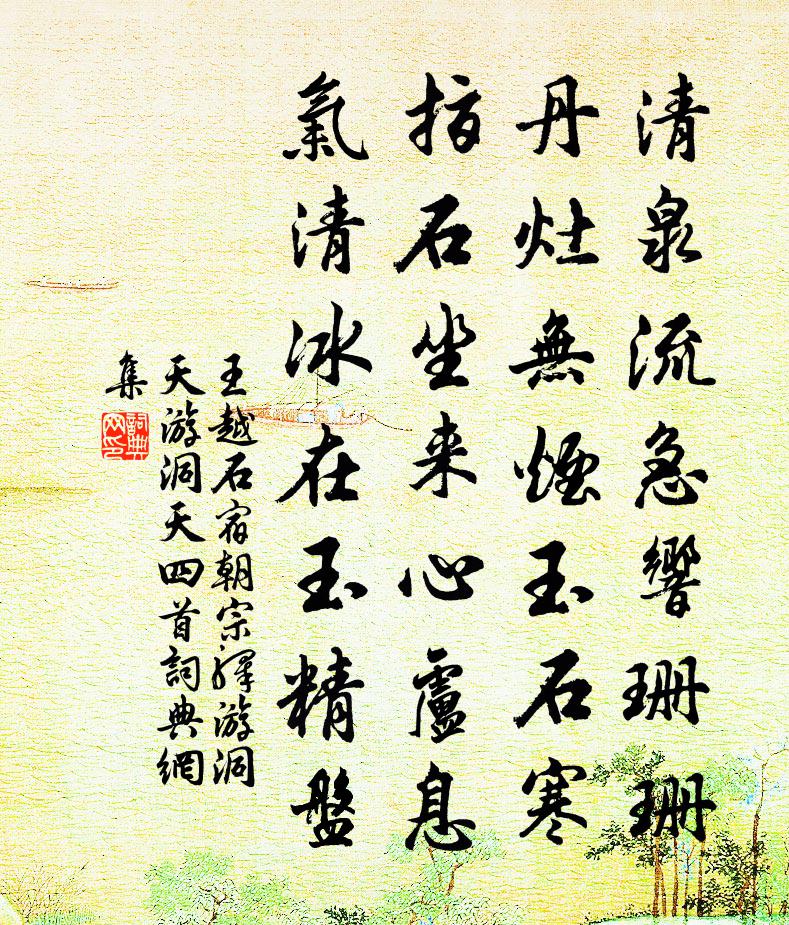 清泉流急響珊珊
丹灶無煙玉石寒
指石坐来心盧息
氣清冰在玉精盤
王越石宿朝宗驛游洞
天游洞天四首詞典網
集
詞典
网印